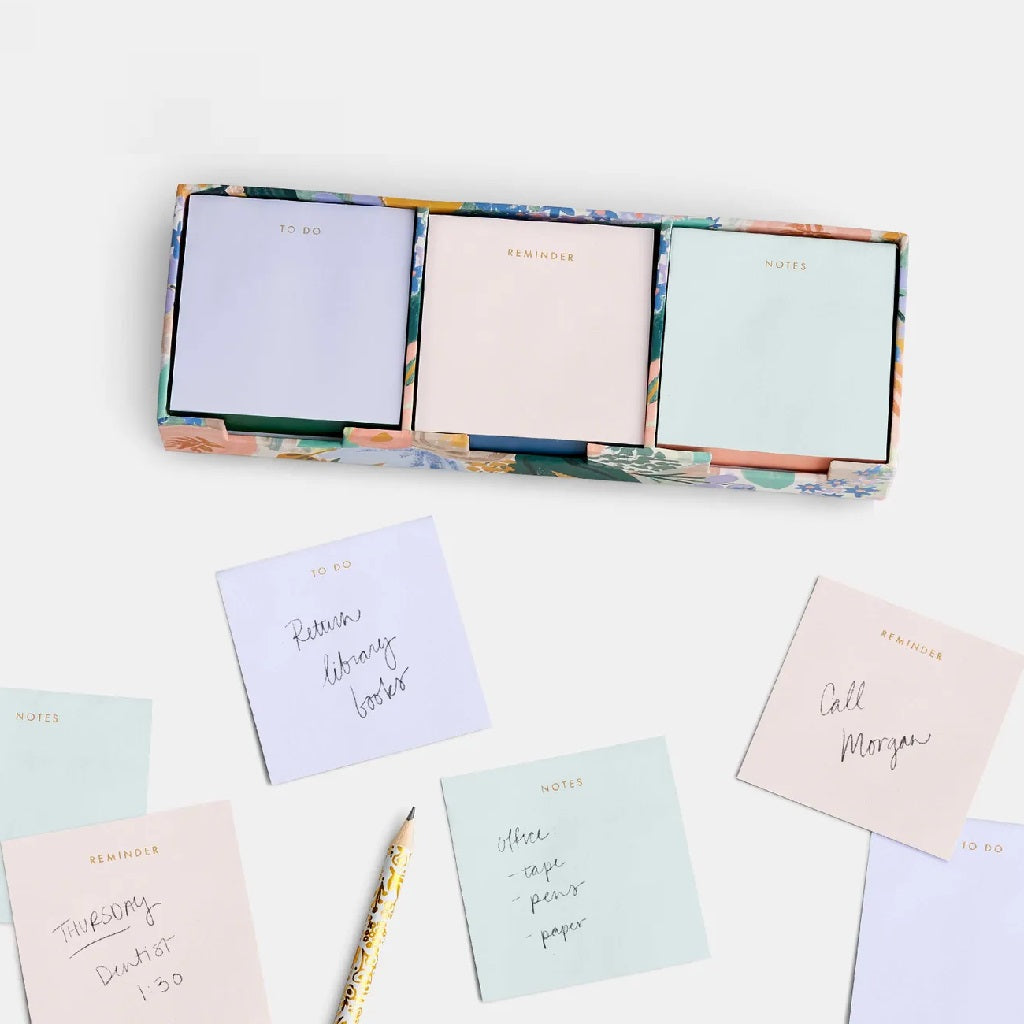 TO DO
REMINDER
NOTES
TO DO
Return
library
books
REMINDER
Call
Morgan
NOTES
NOTES
office
- tape
- pens
- paper
TO DO
REMINDER
THURSDAY
Dentist
1:30